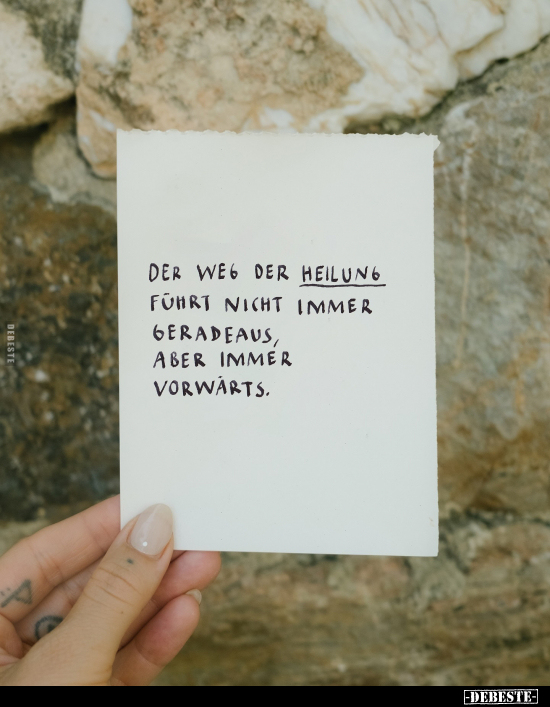 DER WEG DER HEILUNG
FÜHRT NICHT IMMER
GERADEAUS,
ABER IMMER
VORWÄRTS.
DEBESTE
-DEBESTE-